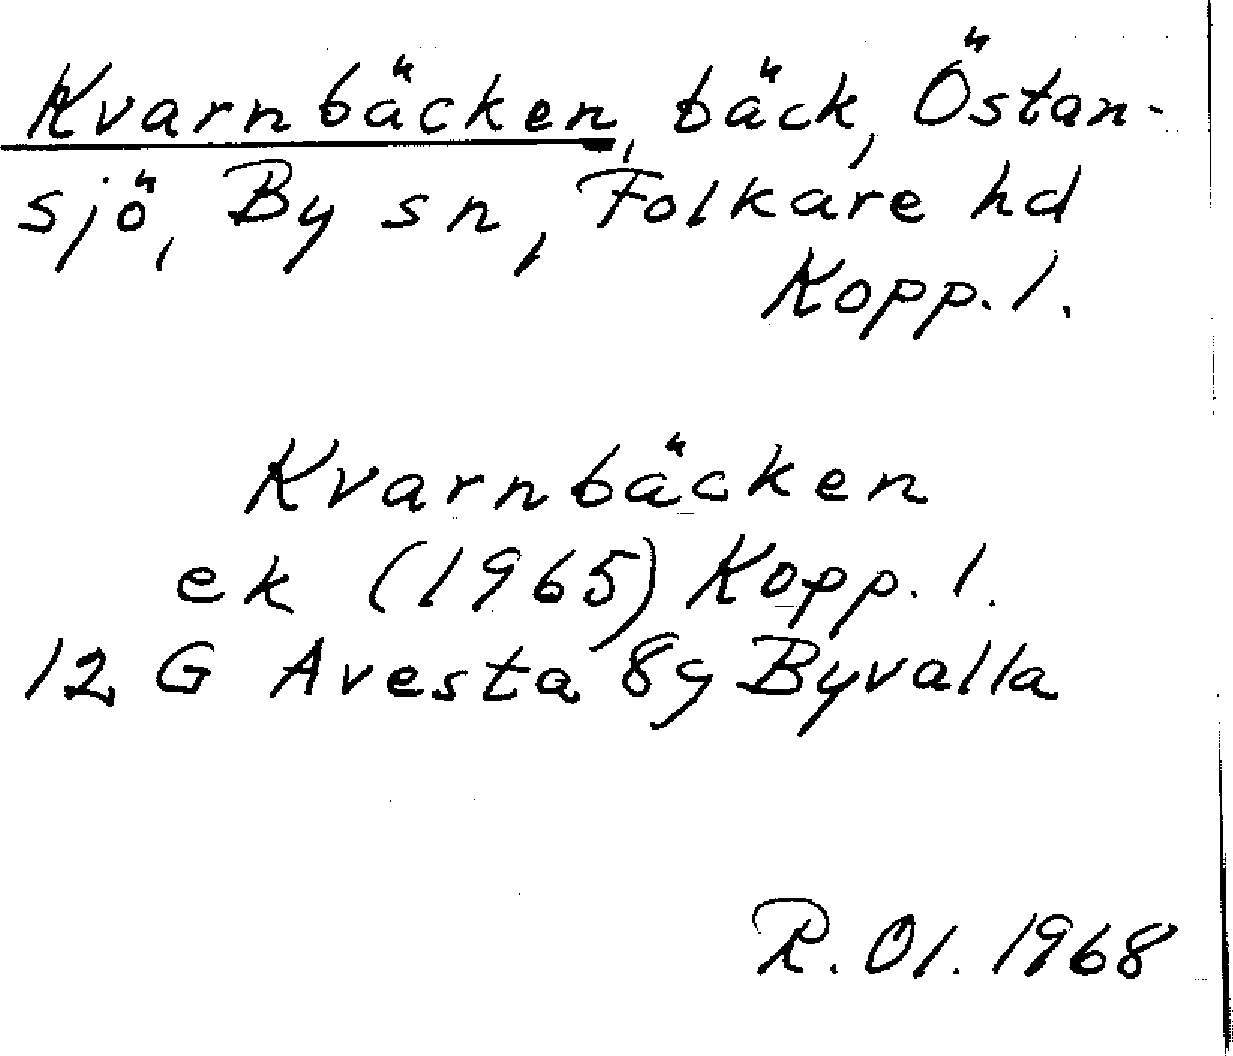 Kvarnbäcken, bäck, Östan-
sjö, By sn, Folkare hd
Kopp. l.
Kvarnbäcken
ek (1965) Kopp. l.
12 G Avesta 8g Byvalla
R. Ol. 1968